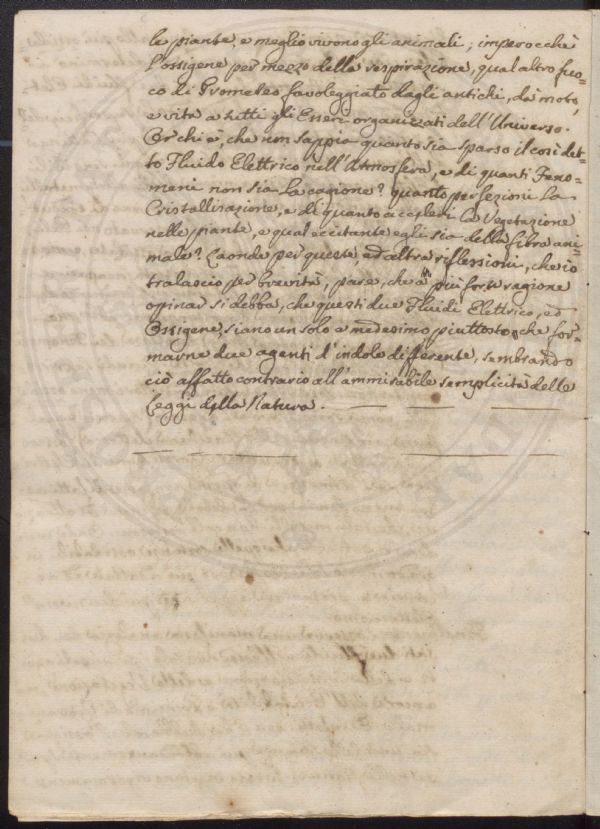 le piante, e meglio vivono gli animali; imperocchè
l'ossigene per mezzo della respirazione, qual altro fuo-
co di Prometeo favoleggiato dagli antichi, dà moto,
e vita a tutti gli Esseri organizzati dell'Universo.
Or chi è, che non sappia quanto sia sparso il così det-
to Fluido Elettrico nell'Atmosfera, e di quanti Feno-
meni non sia la cagione? quanto perfezioni la
Cristallizazione, e di quanto acceleri la Vegetazione
nelle piante, e qual eccitante egli sia della fibra ani-
male? Laonde per queste, ed altre riflessioni, che io
tralascio per brevità, pare, che a più forte ragione
opinar si debba, che questi due Fluidi Elettrico, ed
Ossigene, siano un solo e medesimo piuttosto, che for-
marne due agenti d'indole differente, sembrando
ciò affatto contrario all'ammirabile semplicità delle
Leggi della Natura.